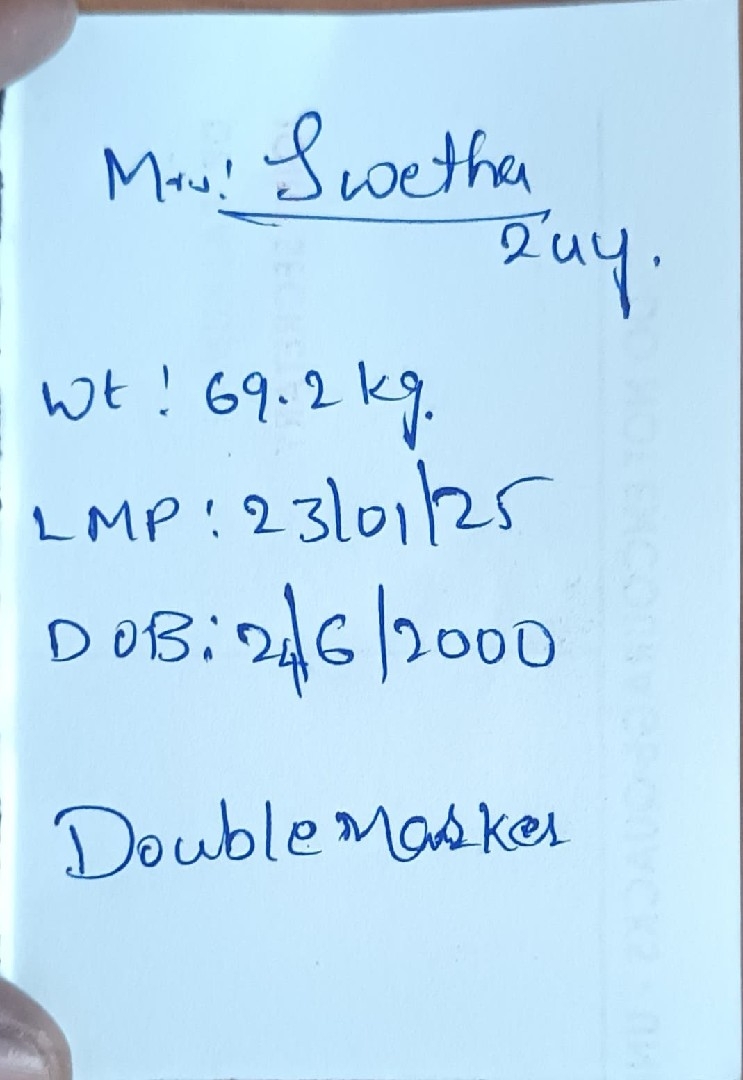 Mrs: Swetha
24y.
Wt: 69.2 kg.
LMP: 23/01/25
DOB: 24/6/2000
Double Marker